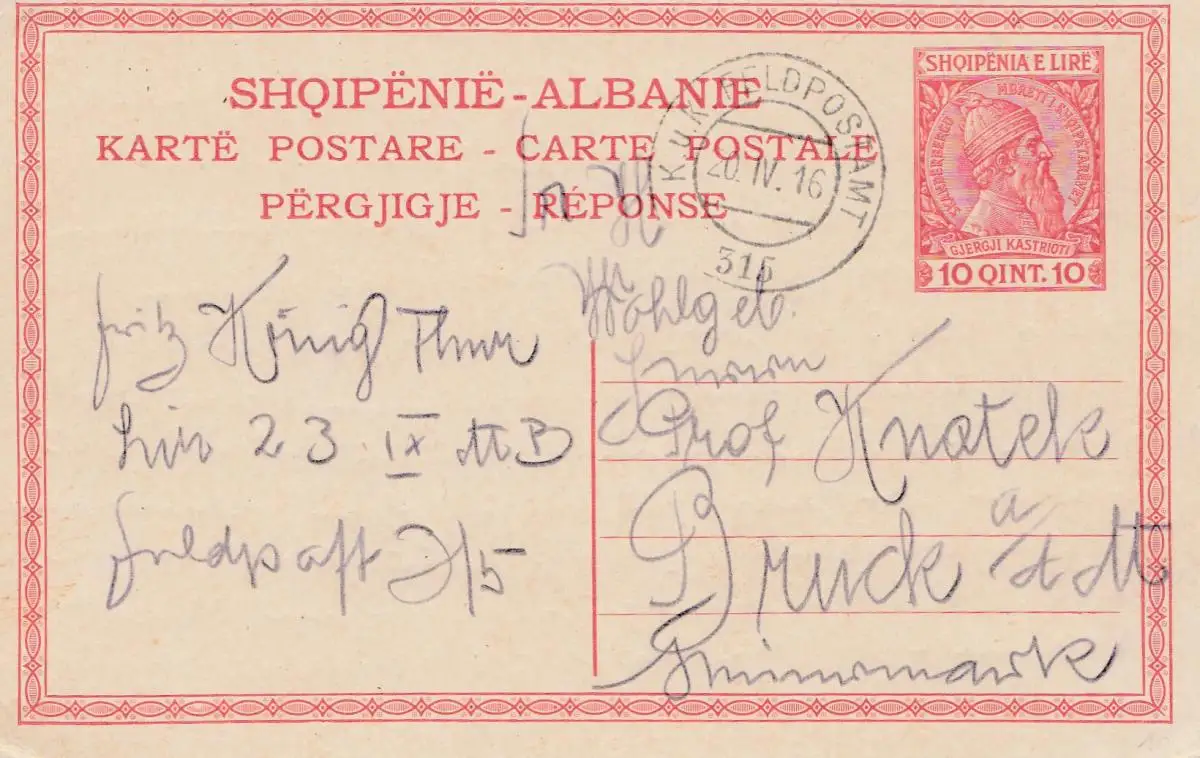 SHQIPËNIË - ALBANIE
KARTË POSTARE - CARTE POSTALE
PËRGJIGJE - RÉPONSE
K.u.K. FELDPOSTAMT
20.IV.16
315
SHQIPËNIA E LIRË
SKANDERBEGU MBRETI I SHQIPTARËVET
GJERGJI KASTRIOTI
10 QINT. 10
Fritz König
23 IX MB
Feldpost
Wohlgeb.
Herrn
Prof Knatek
Bruck a
d M
Steiermark